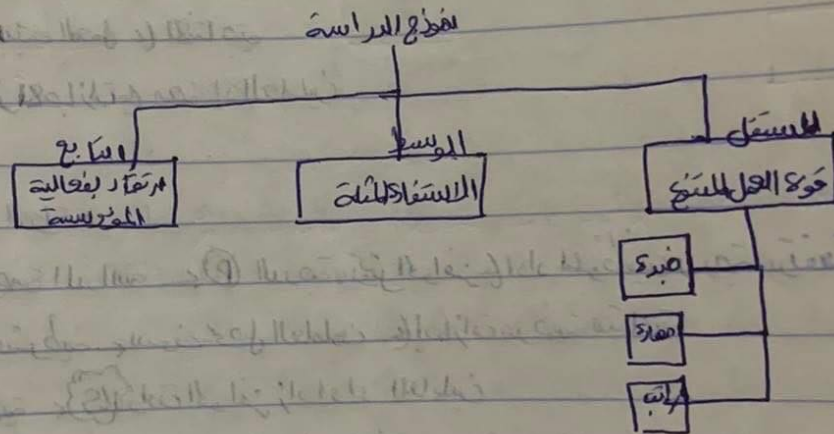 نموذج الدراسة
المستقل
قوة العمل المنتج
خبرة
مهارة
راتب
الوسيط
الاستفادة المثلة
التابع
ارتقاء بفعالية
المؤسسة